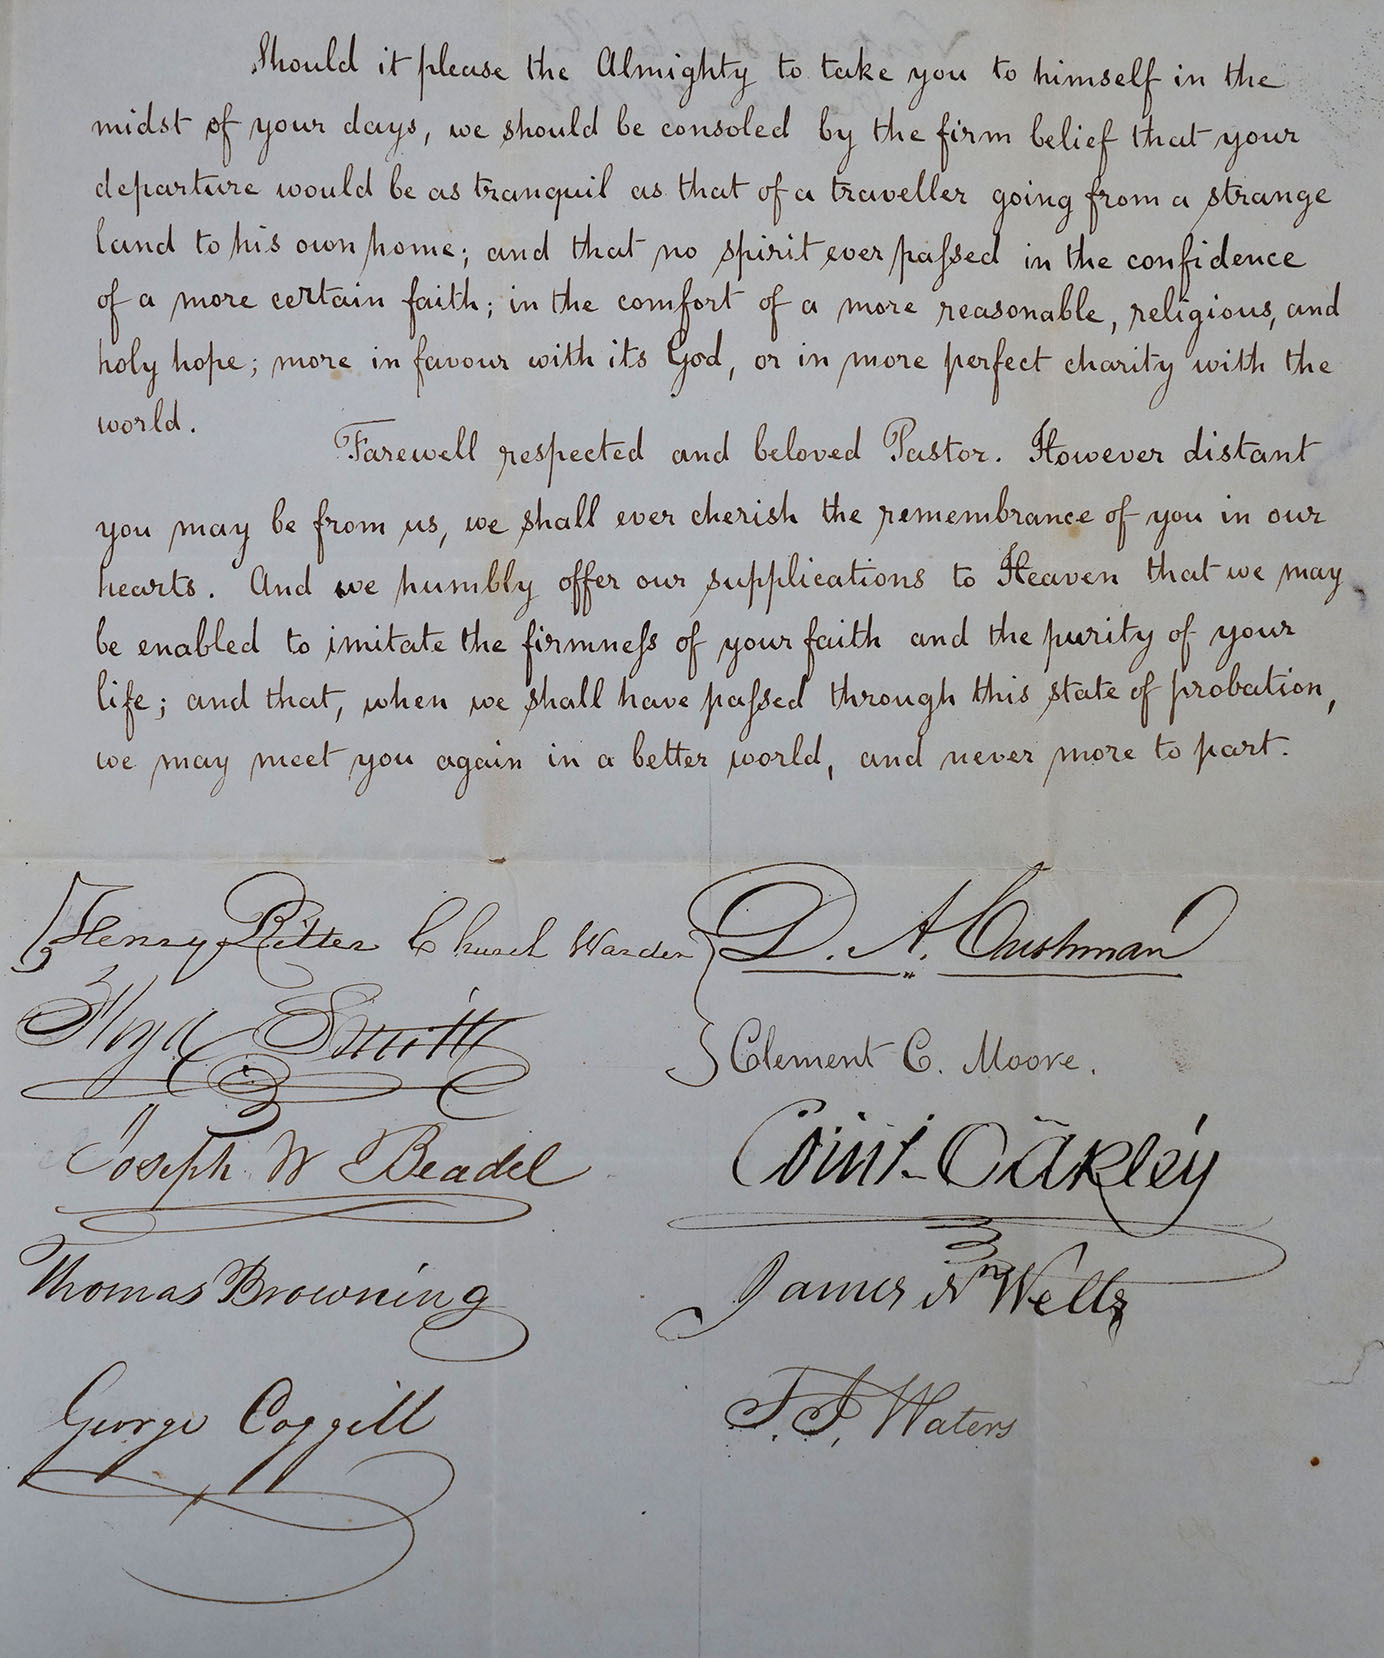 Should it please the Almighty to take you to himself in the
midst of your days, we should be consoled by the firm belief that your
departure would be as tranquil as that of a traveller going from a strange
land to his own home; and that no spirit ever paſsed in the confidence
of a more certain faith; in the comfort of a more reasonable, religious, and
holy hope; more in favour with its God, or in more perfect charity with the
world.
Farewell respected and beloved Pastor. However distant
you may be from us, we shall ever cherish the remembrance of you in our
hearts. And we humbly offer our supplications to Heaven that we may
be enabled to imitate the firmneſs of your faith and the purity of your
life; and that, when we shall have paſsed through this state of probation,
we may meet you again in a better world, and never more to part.
Henry Ritter Church Warden
D. A. Cushman
Floyd Smith
Clement C. Moore.
Joseph W Beadel
Oakley
Thomas Browning
James N Wells
George Coggill
T. J. Waters